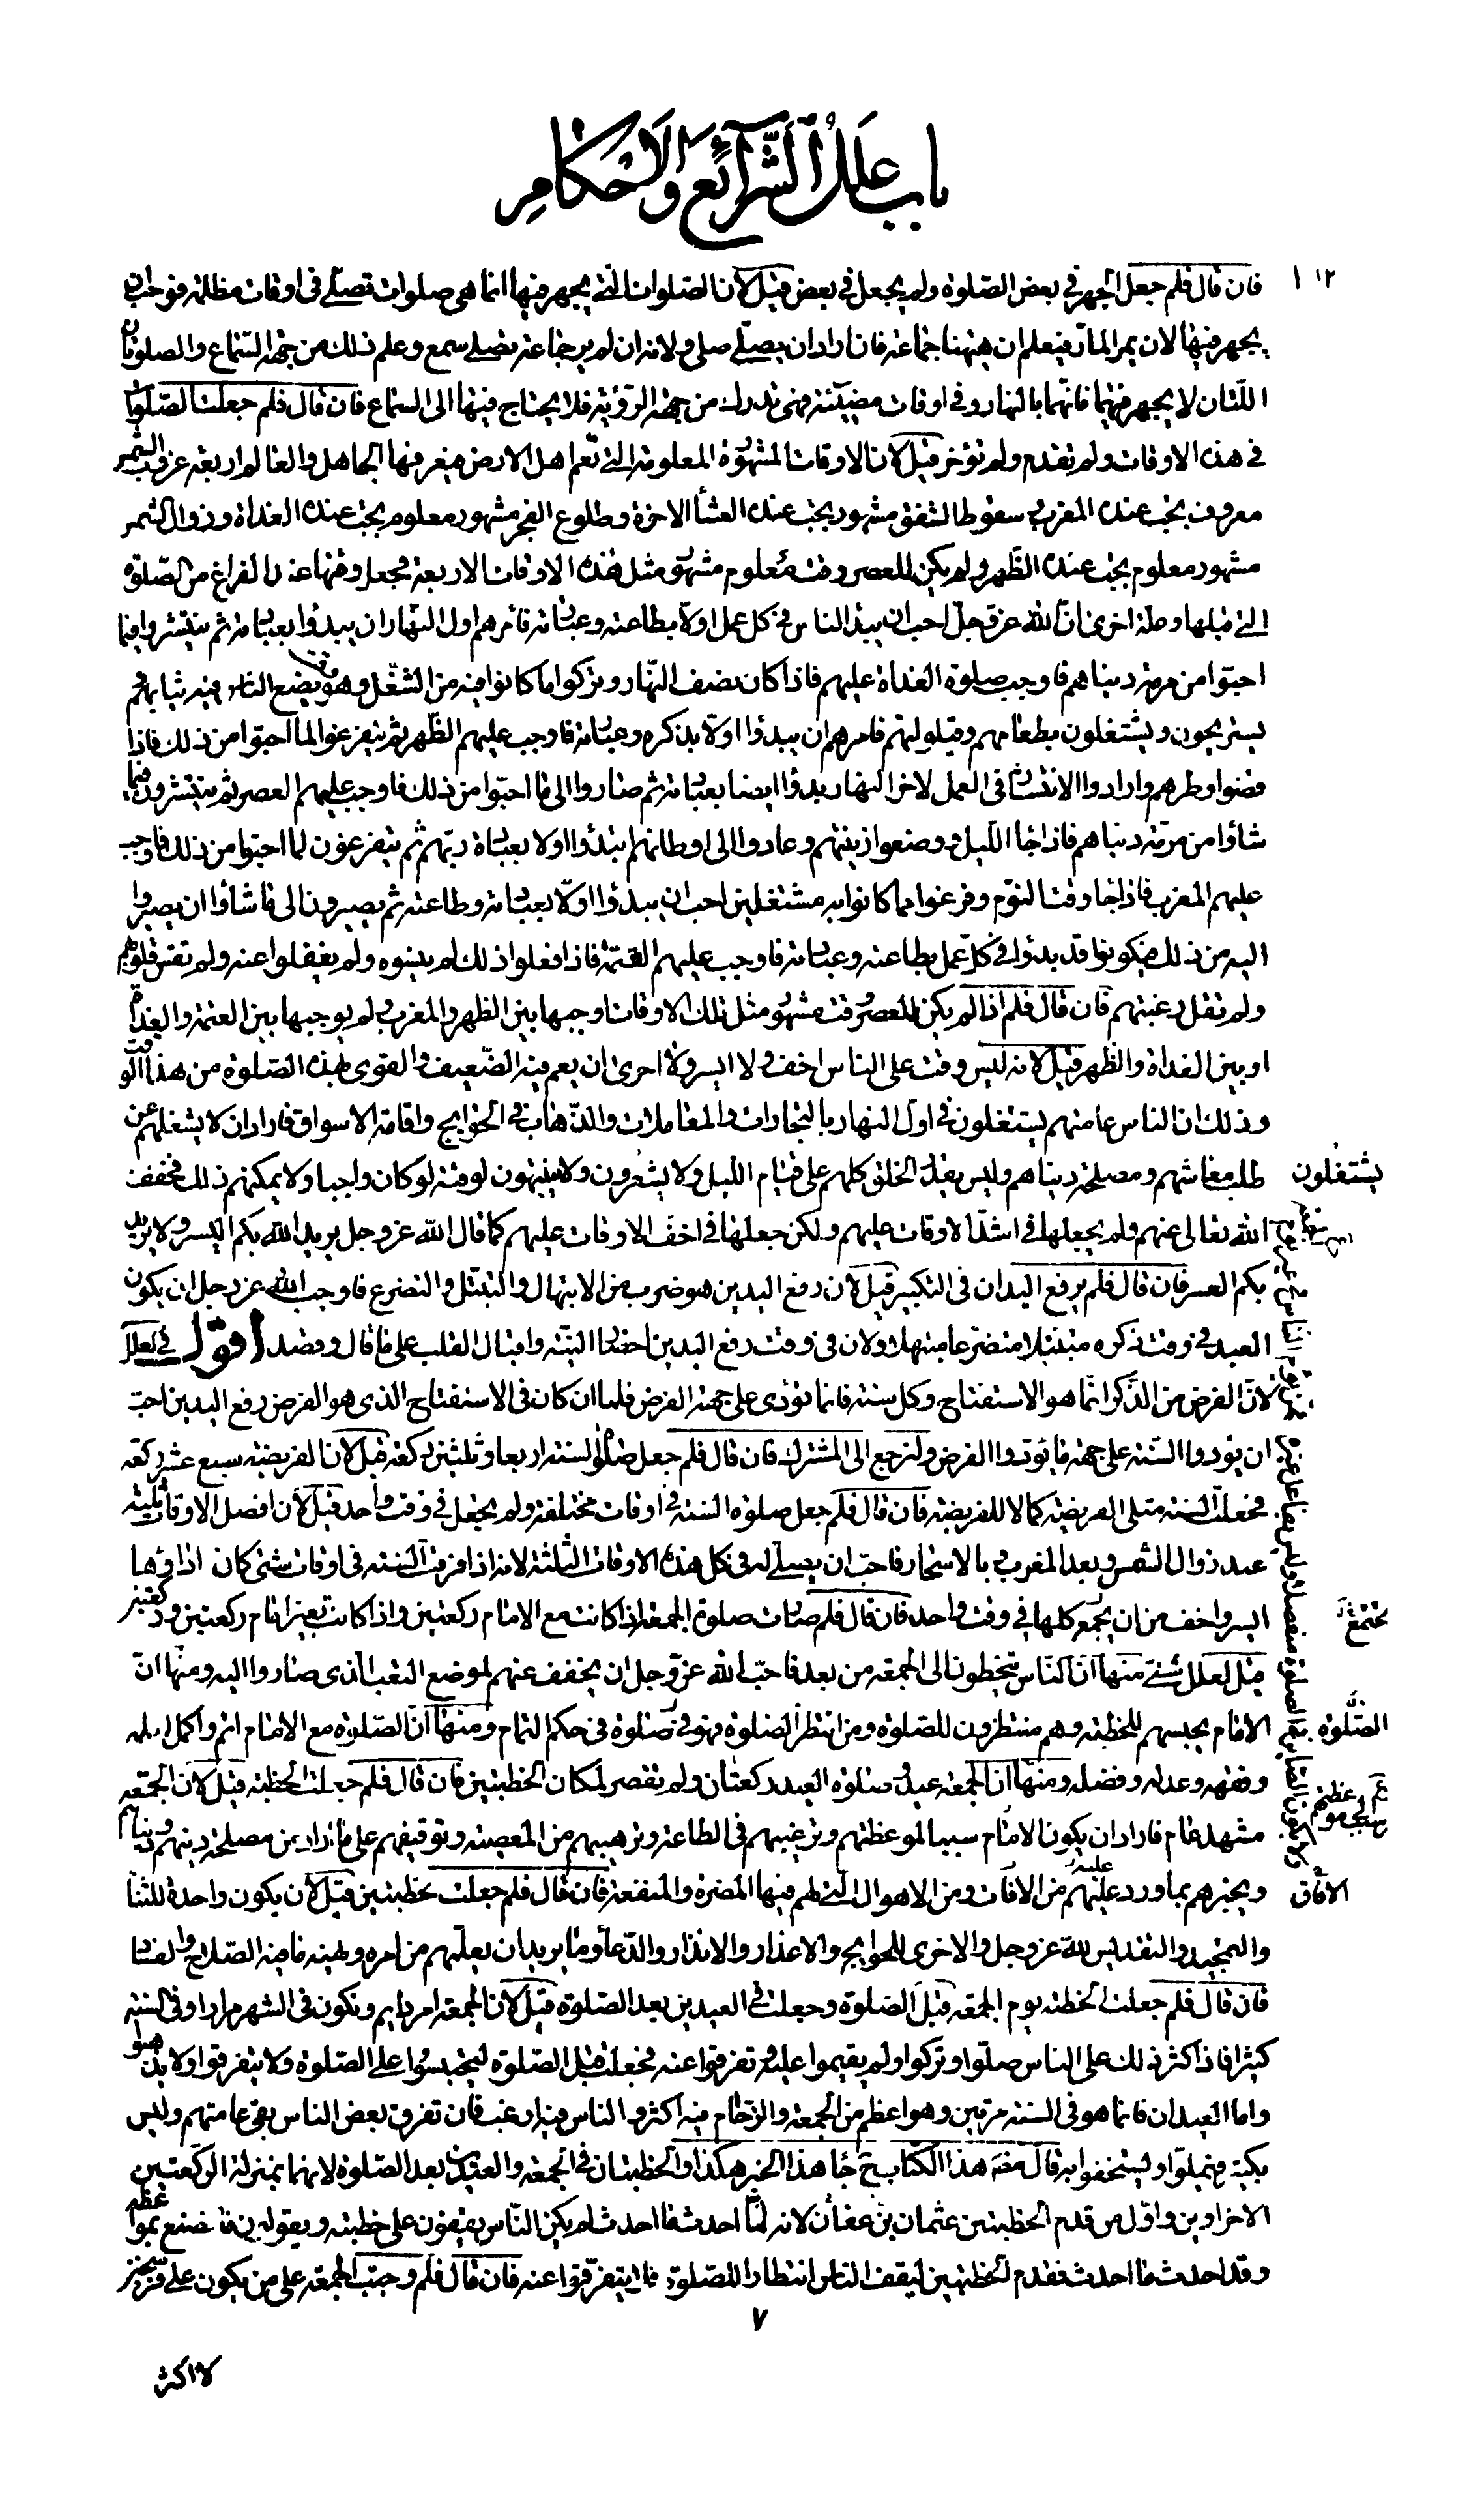 باب علل الشرائع والاحكام
١١٢
فان قال فلم جعل الجهر فى بعض الصلوة ولم يجعل فى بعض قيل لان الصلوات التى يجهر فيها انما هى صلوات تصلى فى اوقات مظلمة فوجب ان
يجهر فيها لان يمر المار فيعلم ان هيهنا جماعة فان اراد ان يصلى صلى ولانه ان لم ير جماعة تصلى سمع وعلم ذلك من جهة السماع والصلوتان
اللتان لا يجهر فيهما فانهما بالنهار وفى اوقات مضيئة فهى تدرك من جهة الرؤية فلا يحتاج فيها الى السماع فان قال فلم جعلت الصلوات
فى هذه الاوقات ولم تقدم ولم تؤخر قيل لان الاوقات المشهورة المعلومة التى تعم اهل الارض فيعرفها الجاهل والعالم اربعة غروب الشمس
معروف يجب عنده المغرب وسقوط الشفق مشهور يجب عنده العشاء الاخرة وطلوع الفجر مشهور معلوم يجب عنده الغداة وزوال الشمس
مشهور معلوم يجب عنده الظهر ولم يكن للعصر وقت معلوم مشهور مثل هذه الاوقات الاربعة فجعل وقتها عند الفراغ من الصلوة
التى قبلها وعلة اخرى ان الله عز وجل احب ان يبدأ الناس فى كل عمل اولا بطاعته وعبادته فامرهم اول النهار ان يبدؤا بعبادته ثم ينتشروا فيما
احبوا من مرمة دنياهم فاوجب صلوة الغداة عليهم فاذا كان نصف النهار وتركوا ما كانوا فيه من الشغل وهو وقت يضع الناس فيه ثيابهم
يستريحون ويشتغلون بطعامهم وقيلولتهم فامرهم ان يبدؤا اولا بذكره وعبادته فاوجب عليهم الظهر ثم يتفرغوا لما احبوا من ذلك فاذا
قضوا وطرهم وارادوا الانتشار فى العمل لاخر النهار بدؤا ايضا بعبادته ثم صاروا الى ما احبوا من ذلك فاوجب عليهم العصر ثم ينتشرون فيما
شاؤا من مرمة دنياهم فاذا جاء الليل ووضعوا زينتهم وعادوا الى اوطانهم ابتدؤا اولا بعبادة ربهم ثم يتفرغون لما احبوا من ذلك فاوجب
عليهم المغرب فاذا جاء وقت النوم وفرغوا مما كانوا به مشتغلين احب ان يبدؤا اولا بعبادته وطاعته ثم يصيرون الى ما شاؤا ان يصيروا
اليه من ذلك فيكونوا قد بدؤا فى كل عمل بطاعته وعبادته فاوجب عليهم العتمة فاذا فعلوا ذلك لم ينسوه ولم يغفلوا عنه ولم تقس قلوبهم
ولم تقل رغبتهم فان قال فلم اذا لم يكن للعصر وقت مشهور مثل تلك الاوقات اوجبها بين الظهر والمغرب ولم يوجبها بين العتمة والغداة
او بين الغداة والظهر قيل لانه ليس وقت على الناس اخف ولا ايسر ولا احرى ان يعم فيه الضعيف والقوى بهذه الصلوة من هذا الوقت
وذلك ان الناس عامتهم يشتغلون فى اول النهار بالتجارات والمعاملات والذهاب فى الحوايج واقامة الاسواق فاراد ان لا يشغلهم عن
يشتغلون
طلب معاشهم ومصلحة دنياهم وليس يقدر الخلق كلهم على قيام الليل ولا يشعرون ولا ينتبهون لوقته لو كان واجبا ولا يمكنهم ذلك فخفف
الله تعالى عنهم ولم يجعلها فى اشد الاوقات عليهم ولكن جعلها فى اخف الاوقات عليهم كما قال الله عز وجل يريد الله بكم اليسر ولا يريد
بكم العسر فان قال فلم يرفع اليدان فى التكبير قيل لان رفع اليدين هو ضرب من الابتهال والتبتل والتضرع فاوجب الله عز وجل ان يكون
العبد فى وقت ذكره متبتلا متضرعا مبتهلا ولان فى وقت رفع اليدين احضار النية واقبال القلب على ما قال وقصد اقول فى العلل
لان الفرض من الذكر انما هو الاستفتاح وكل سنة فانما تؤدى على جهة الفرض فلما ان كان فى الاستفتاح الذى هو الفرض رفع اليدين احب
ان يؤدوا السنة على جهة ما يؤدوا الفرض ولنرجع الى المشترك فان قال فلم جعل صلوة السنة اربعا وثلثين ركعة قيل لان الفريضة سبع عشر ركعة
فجعلت السنة مثلى الفريضة كمالا للفريضة فان قال فلم جعل صلوة السنة فى اوقات مختلفة ولم يجعل فى وقت واحد قيل لان افضل الاوقات ثلثة
عند زوال الشمس وبعد المغرب وبالاسحار فاحب ان يصلى له فى كل هذه الاوقات الثلثة لانه اذا فرقت السنة فى اوقات شتى كان اداؤها
ايسر واخف من ان يجمع كلها فى وقت واحد فان قال فلم صارت صلوة الجمعة اذا كانت مع الامام ركعتين واذا كانت بغير امام ركعتين وركعتين
تجتمع
قيل لعلل شتى منها ان الناس يتخطون الى الجمعة من بعد فاحب الله عز وجل ان يخفف عنهم لموضع التعب الذى صاروا اليه ومنها ان
الامام يحبسهم للخطبة وهم منتظرون للصلوة ومن انتظر الصلوة فهو فى صلوة فى حكم التمام ومنها ان الصلوة مع الامام اتم واكمل لعلمه
الصلوة
وفقهه وعدله وفضله ومنها ان الجمعة عيد وصلوة العيد ركعتان ولم تقصر لمكان الخطبتين فان قال فلم جعلت الخطبة قيل لان الجمعة
مشهد عام فاراد ان يكون الامام سببا لموعظتهم وترغيبهم فى الطاعة وترهيبهم من المعصية وتوقيفهم على ما اراد من مصلحة دينهم ودنياهم
ويخبرهم بما ورد عليهم من الافات ومن الاهوال التى لهم فيها المضرة والمنفعة فان قال فلم جعلت خطبتين قيل لان يكون واحدة للثناء
الافاق
والتمجيد والتقديس لله عز وجل والاخرى للحوايج والاعذار والانذار والدعاء وما يريد ان يعلمهم من امره ونهيه ما فيه الصلاح والفساد
فان قال فلم جعلت الخطبة يوم الجمعة قبل الصلوة وجعلت فى العيدين بعد الصلوة قيل لان الجمعة امر دايم وتكون فى الشهر مرارا وفى السنة
كثيرا فاذا كثر ذلك على الناس صلوا وتركوا ولم يقيموا عليه وتفرقوا عنه فجعلت قبل الصلوة ليحتبسوا على الصلوة ولا يتفرقوا ولا يذهبوا
واما العيدان فانما هو فى السنة مرتين وهو اعظم من الجمعة والزحام فيه اكثر والناس فيه ارغب فان تفرق بعض الناس بقى عامتهم وليس
بكثير فيملوا ويستخفوا به قال مصنف هذا الكتاب جاء هذا الخبر هكذا والخطبتان فى الجمعة والعيدين بعد الصلوة لانهما بمنزلة الركعتين
الاخراوين واول من قدم الخطبتين عثمان بن عفان لانه لما احدث ما احدث لم يكن الناس يقفون على خطبته ويقولون ما نصنع بمواعظه
وقد احدث ما احدث فقدم الخطبتين ليقف الناس انتظارا للصلوة فلا يتفرقوا عنه فان قال فلم وجبت الجمعة على من يكون على فرسخين
٧
لا اكثر